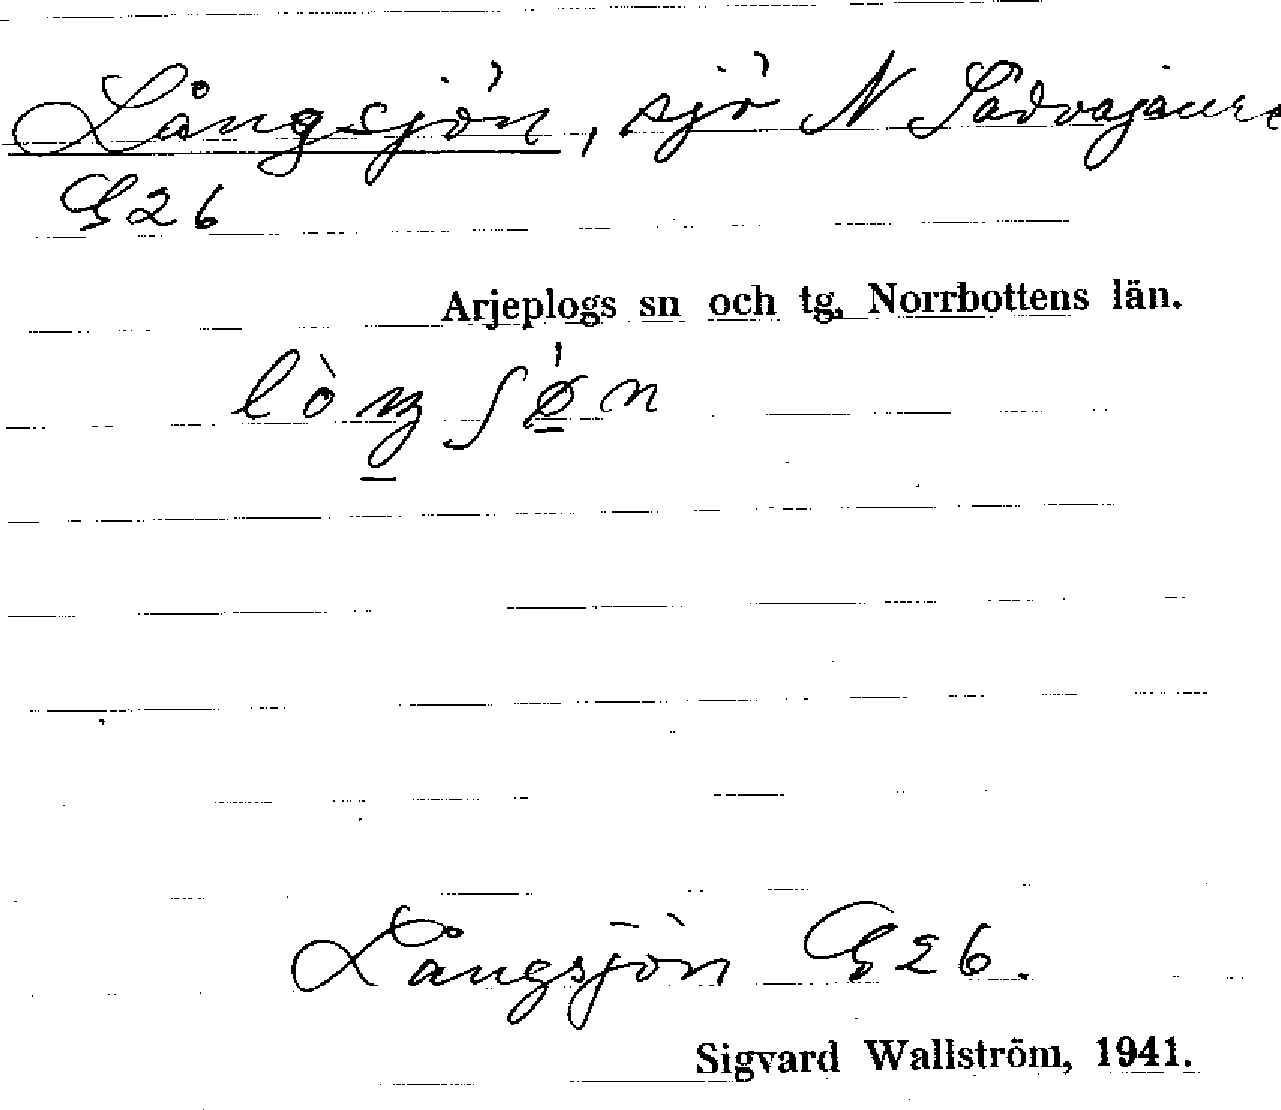 Långsjön, sjö N Sädvajaure
G26
Arjeplogs sn och tg, Norrbottens län.
Långsjön G26.
Sigvard Wallström, 1941.